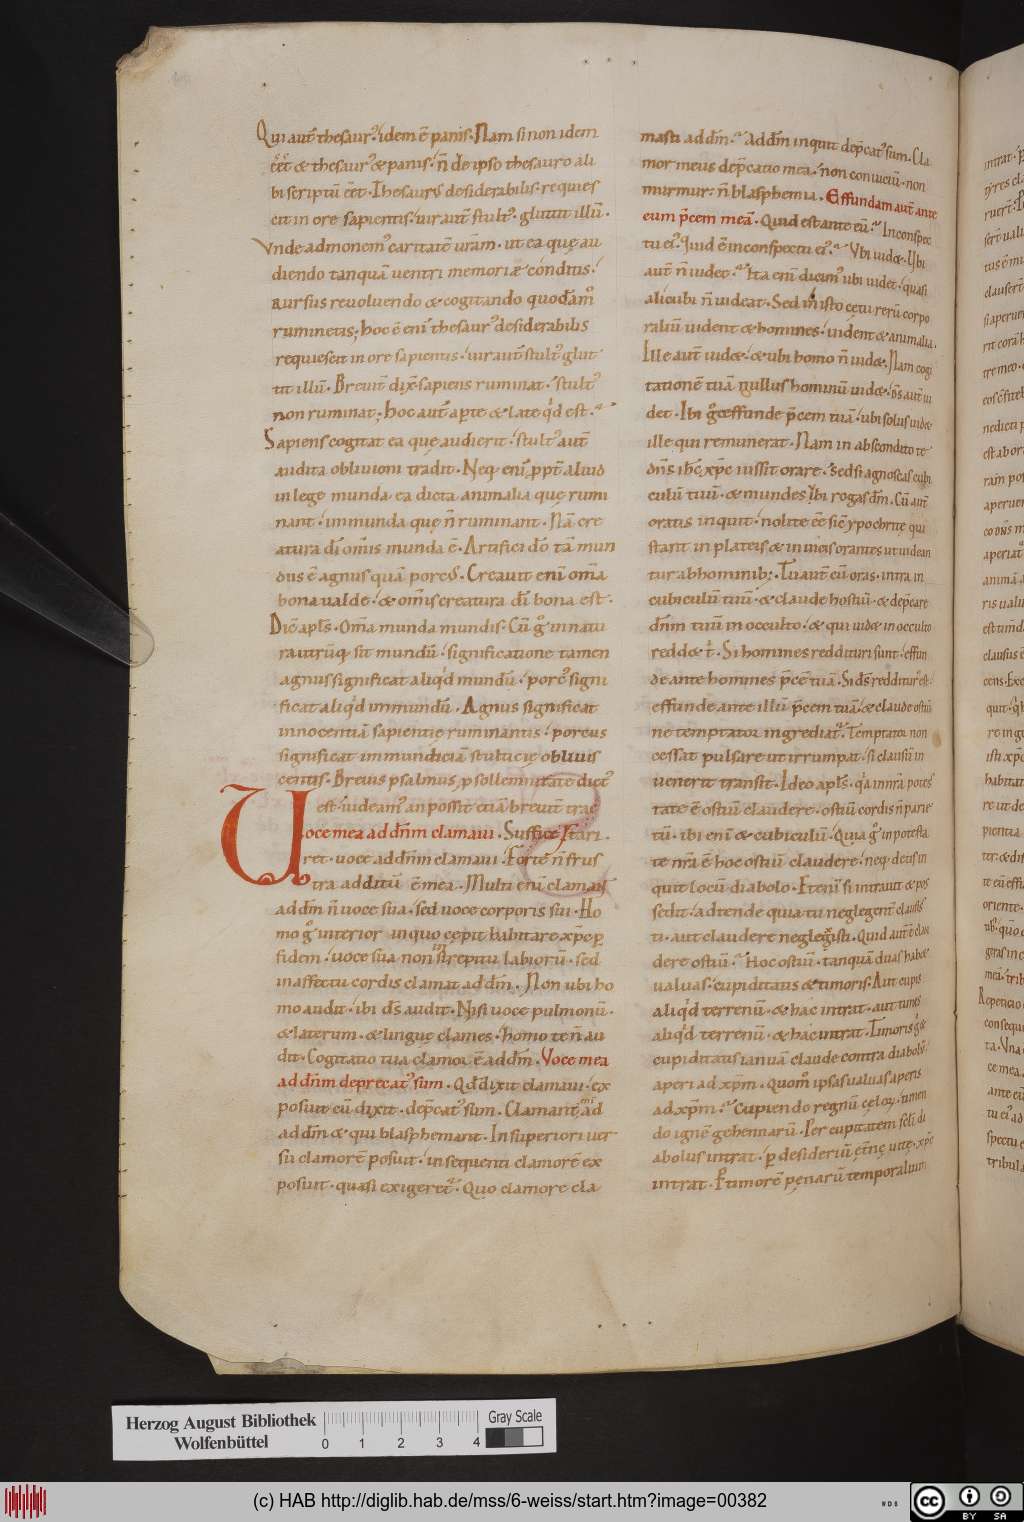 Qui aut̄ thesaur᷒ idem ē panis. Nam si non idem
eēt & thesaur᷒ & panis. n̄ de ipso thesauro ali
bi scriptū eēt. Thesaurus desiderabilis requies
cit in ore sapientis. uir aut̄ stult᷒. glutit illū.
Vnde admonem᷒ caritatē uram̄. ut ea quę au
diendo tanquā uentri memoriæ conditis.
rursus reuoluendo & cogitando quodam᷒o
ruminetis; hoc ē eni thesaur᷒ desiderabilis
requiescit in ore sapientis. uir aut̄ stult᷒ glut
tit illū. Breuit̄ dix̄. sapiens ruminat. stult᷒
non ruminat; hoc aut̄ apte & late qd̄ est.
Sapiens cogitat ea quę audierit. stult᷒ aut̄
audita obliuioni tradit. Neq; eni ppt̄ aliud
in lege munda ea dicta animalia quę rumi
nant. immunda quę n̄ ruminant. Nā cre
atura dī omīs munda ē. Artifici dō tā mun
dus ē agnus quā porc᷒. Creauit enī omīa
bona ualde. & omīs creatura dī bona est.
Dic̄ apls̄. Omīa munda mundis. Cū g° in natu
ra utrūq; sit mundū. significatione tamen
agnus significat aliqd̄ mundū. porc᷒ signi
ficat aliqd̄ immundū. Agnus significat
innocentiā sapientię ruminantis. porcus
significat immundiciā stulticię obliuis
centis. Breuis psalmus. p sollemnitate dict᷒
est. uideam᷒ an possit etiā breuit̄ trac
Voce mea ad dn̄m clamaui. Sufficeret tari.
ret. uoce ad dn̄m clamaui. Forte n̄ frus
tra additū ē mea. Multi enī clamant
ad dn̄m n̄ uoce sua. sed uoce corporis sui. Ho
mo g° interior in quo cępit habitare xp̄c p
fidem. uoce sua non in strepitu labiorū. sed
in affectu cordis clamat ad dn̄m. Non ubi ho
mo audit. ibi ds̄ audit. Nisi uoce pulmonū.
& laterum. & linguę clames. homo te n̄ au
dit. Cogitatio tua clamor ē ad dn̄m. Voce mea
ad dn̄m deprecat᷒ sum. Qd̄ dixit clamaui. ex
posuit cū dixit. dep̄cat᷒ sum. Clamant eni ad
ad dn̄m & qui blasphemant. In superiori uer
su clamorē posuit. in sequenti clamorē ex
posuit. quasi exigeret᷒. Quo clamore cla
masti ad dn̄m. Ad dn̄m inquit dep̄cat᷒ sum. Cla
mor meus dep̄catio mea. non conuiciū. non
murmur. n̄ blasphemia. Effundam aut̄ ante
eum p̄cem meā. Quid est ante eū. In conspec
tu ei᷒. Quid ē in conspectu ei᷒. Vbi uid&. Vbi
aut̄ n̄ uidet. Ita enī dicim᷒ ubi uidet. quasi
alicubi n̄ uideat. Sed in isto cętu rerū corpo
raliū uident & homines. uident & animalia.
Ille aut̄ uid&. & ubi homo n̄ uid&. Nam cogi
tationē tuā nullus hominū uid&. Ds̄ aut̄ ui
det. Ibi g° effunde p̄cem tuā. ubi solus uid&
ille qui remunerat. Nam in abscondito te
dn̄s ih̄c xp̄c iussit orare. Sed si agnoscas cubi
culū tuū. & mundes. ibi rogas dm̄. Cū aut̄
oratis inquit. nolite eē sic ypochritę qui
stant in plateis & in uicis orantes ut uidean
tur ab hominib;. Tu aut̄ cū oras. intra in
cubiculū tuū. & claude hostiū. & dep̄care
dn̄m tuū in occulto. & qui uid& in occulto
redd& t'. Si homines reddituri sunt. effun
de ante homines p̄cē tuā. Si ds̄ redditur᷒ est.
effunde ante illū p̄cem tuā. & claude ostiū
ne temptator ingrediat᷒. Temptator non
cessat pulsare ut irrumpat. si clausū in
uenerit transit. Ideo apls̄. qa in nra potes
tate ē ostiū claudere. ostiū cordis n̄ parie
tū. ibi enī & cubiculū. Quia g° in potesta
te nra ē hoc ostiū claudere. neq; detis in
quit locū diabolo. Etenī si intrauit & pos
sedit. adtende quia tu neglegent̄ clausis
ti. aut claudere neglexisti. Quid aut̄ ē clau
dere ostiū. Hoc ostiū. tanquā duas hab&
ualuas. cupiditatis & timoris. Aut cupis
aliqd̄ terrenū. & hac intrat. aut times
aliqd̄ terrenū. & hac intrat. Timoris g° &
cupiditatis ianuā claude contra diabolū.
aperi ad xp̄m. Quom᷒ ipsas ualuas aperis
ad xp̄m. Cupiendo regnū cęloꝝ. timen
do ignē gehennarū. Per cupitatem scłi di
abolus intrat. p desideriū ęt̄nę uitę. xp̄c
intrat. P timorē pęnarū temporaliū
Herzog August Bibliothek
Wolfenbüttel
0 1 2 3 4
Gray Scale
(c) HAB http://diglib.hab.de/mss/6-weiss/start.htm?image=00382
cc BY SA